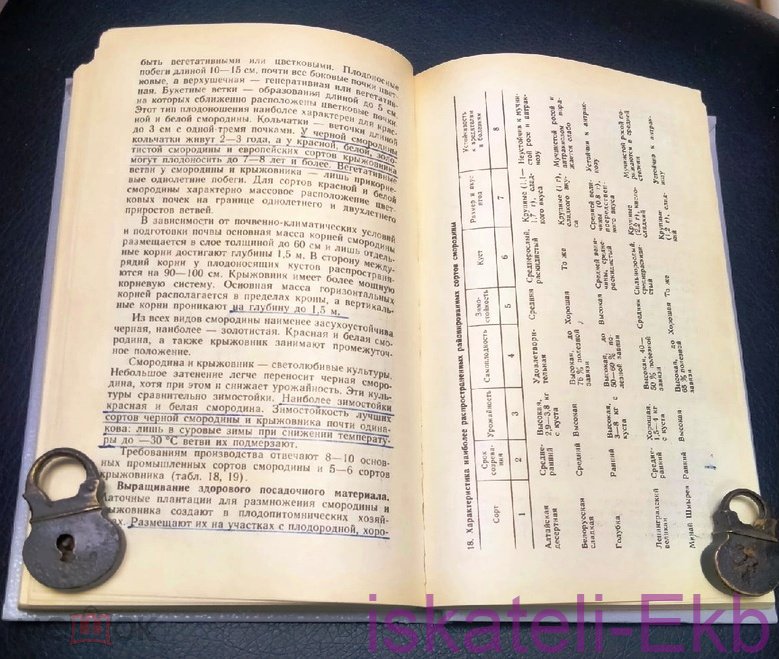 быть вегетативными или цветковыми. Плодоносные
побеги длиной 10—15 см, почти все боковые почки цветковые,
ковые, а верхушечная — генеративная или вегетатив-
ная. Букетные ветки — образования длиной до 5 см,
на которых сближенно расположены цветковые почки.
Этот тип плодоношения наиболее характерен для крас-
ной и белой смородины. Кольчатки — веточки длиной
до 3 см с одной-тремя почками. У черной смородины
кольчатки живут 2—3 года, а у красной, белой, золо-
тистой смородины и европейских сортов крыжовника
могут плодоносить до 7—8 лет и более. Вегетативные
ветви у смородины и крыжовника — лишь прикорне-
вые однолетние побеги. Для сортов красной и белой
смородины характерно массовое расположение цветк-
овых почек на границе однолетнего и двухлетнего
приростов ветвей.
В зависимости от почвенно-климатических условий
и подготовки почвы основная масса корней смородины
размещается в слое толщиной до 60 см и лишь отдель-
ные корни достигают глубины 1,5 м. В сторону между-
рядий корни у плодоносящих кустов распространя-
ются на 90—100 см. Крыжовник имеет более мощную
корневую систему. Основная масса горизонтальных
корней располагается в пределах кроны, а вертикаль-
ные корни проникают на глубину до 1,5 м.
Из всех видов смородины наименее засухоустойчива
черная, наиболее — золотистая. Красная и белая смо-
родина, а также крыжовник занимают промежуточ-
ное положение.
Смородина и крыжовник — светолюбивые культуры.
Небольшое затенение легче переносит черная сморо-
дина, хотя при этом и снижает урожайность. Эти куль-
туры сравнительно зимостойки. Наиболее зимостойки
красная и белая смородина. Зимостойкость лучших
сортов черной смородины и крыжовника почти одина-
кова: лишь в суровые зимы при снижении температу-
ры до —30 °С ветви их подмерзают.
Требованиям производства отвечают 8—10 основ-
ных промышленных сортов смородины и 5—6 сортов
крыжовника (табл. 18, 19).
Выращивание здорового посадочного материала.
Маточные плантации для размножения смородины и
крыжовника создают в плодопитомнических хозяй-
ствах. Размещают их на участках с плодородной, хоро-
18. Характеристика наиболее распространенных районированных сортов смородины
Сорт Срок созревания Урожайность Самоплодность Зимостойкость Куст Размер и вкус ягод Устойчивость к вредителям и болезням
1 2 3 4 5 6 7 8
Алтайская десертная Средне-ранний Высокая, 2,9—3,8 кг с куста Удовлетворительная Средняя Среднерослый, раскидистый Крупные (1,1—1,7 г), сладкого вкуса Неустойчив к мучнистой росе и антракнозу
Белорусская сладкая Средний Высокая Высокая, до 76 % полезной завязи Хорошая То же Крупные (до 1 г), сладкого вкуса Мучнистой росой и антракнозом поражается слабо
Голубка Ранний Высокая, 3—8 кг с куста Высокая, до 50—60 % полезной завязи Высокая Средней величины, среднераскидистый Средней величины (0,8 г), посредственного вкуса Устойчив к антракнозу
Ленинградский великан Средне-ранний Хорошая, 1,5—4 кг с куста Высокая, 40—50 % полезной завязи Средняя Сильнорослый, среднераскидистый Крупные (2,2 г), кисло-сладкий Мучнистой росой поражается в средней степени
Минай Шмырев Ранний Высокая Высокая, до 65 % полезной завязи Хорошая То же Крупные (1,2 г), сладкий Устойчив к антракнозу
iskateli-Ekb